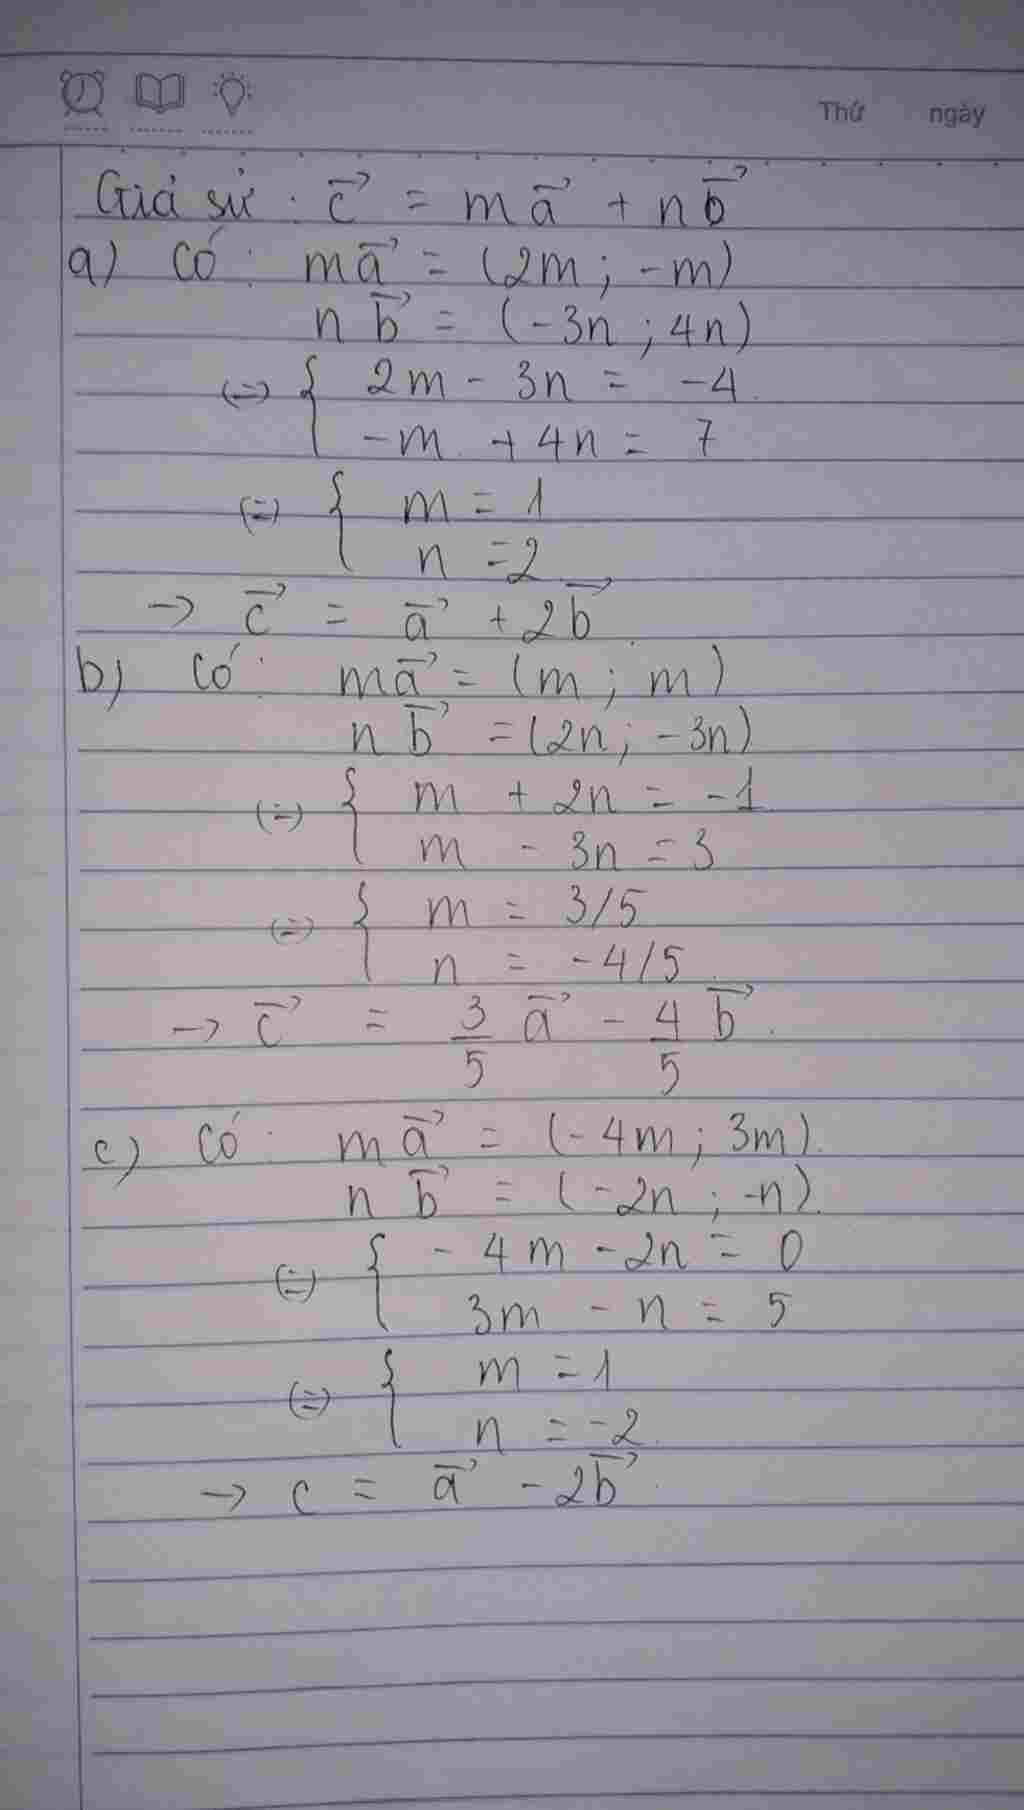 Thứ ngày
Giả sử : c⃗ = ma⃗ + nb⃗
a) Có : ma⃗ = (2m ; -m)
n b⃗ = (-3n ; 4n)
(=) { 2m - 3n = -4
-m + 4n = 7
(=) { m = 1
n = 2
→ c⃗ = a⃗ + 2b⃗.
b) Có : ma⃗ = (m ; m)
n b⃗ = (2n ; -3n)
(=) { m + 2n = -1
m - 3n = 3
(=) { m = 3/5
n = -4/5.
→ c⃗ = 3/5 a⃗ - 4/5 b⃗.
c) Có : ma⃗ = (-4m ; 3m).
n b⃗ = (-2n ; -n).
(=) { -4m - 2n = 0
3m - n = 5
(=) { m = 1
n = -2.
→ c = a⃗ - 2b⃗.